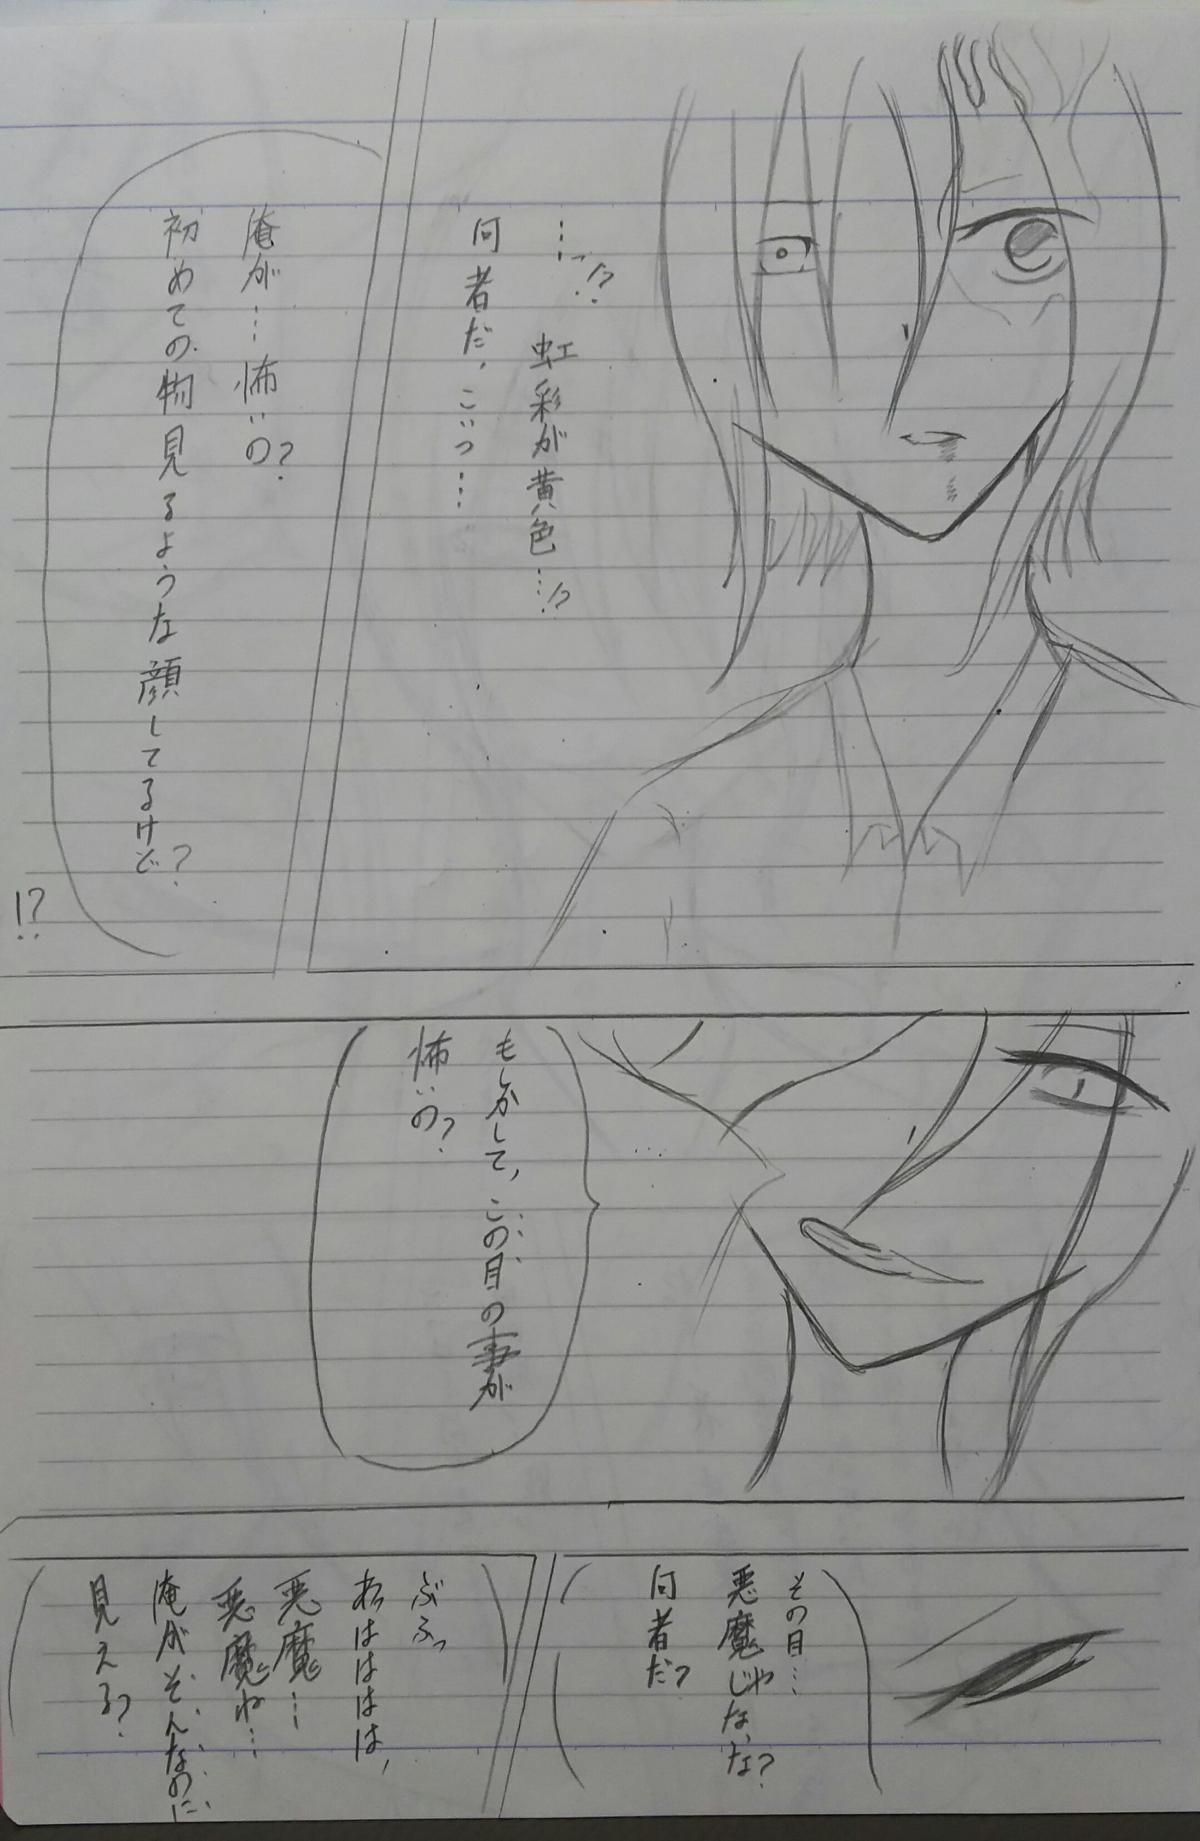 …っ!?
虹彩が黄色…!?
何者だ、こいつ…
俺が…怖いの?
初めての物見るような顔してるけど?
!?
もしかして、この目の事が
怖いの?
その目…
悪魔じゃないな?
何者だ?
ぶふっ
あっはははは、
悪魔…
悪魔ね…
俺がそんなのに
見える?